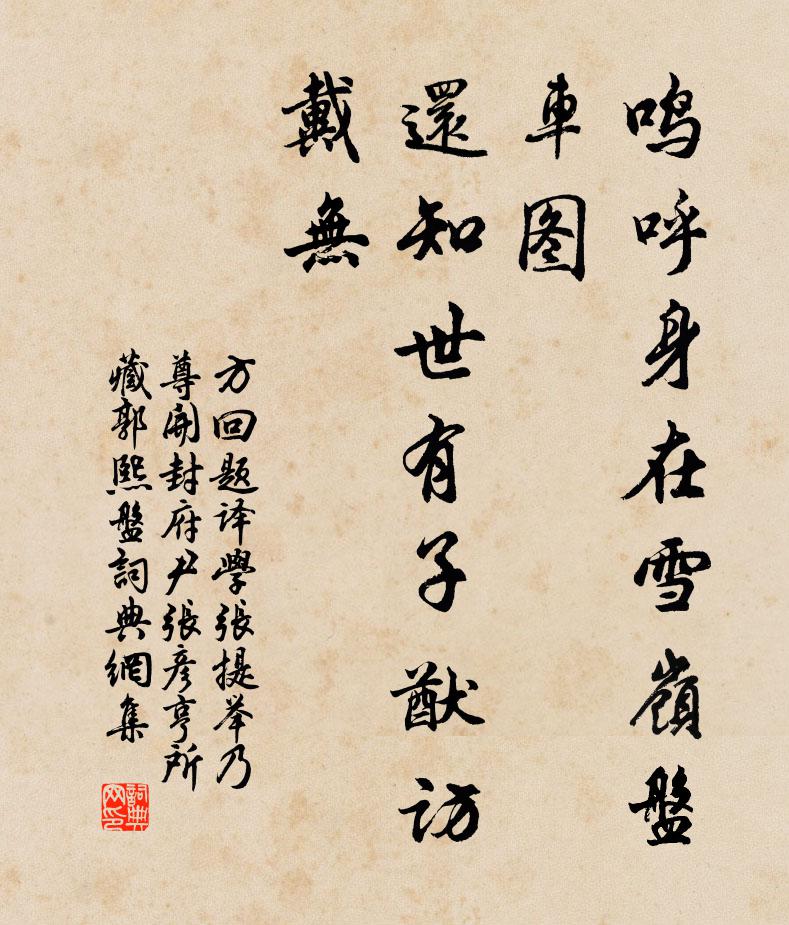 鸣呼身在雪嶺盤
車图
還知世有子猷訪
戴無
方回题译學張提举乃
尊開封府尹張彦亨所
藏郭熙盤詞典網集
詞典
网印